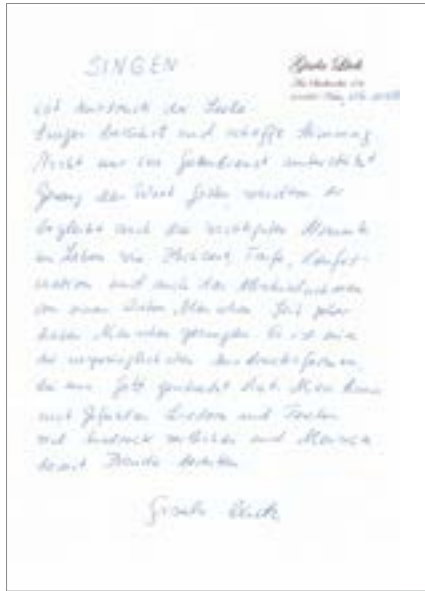 SINGEN
ist Ausdruck der Seele.
Singen berührt und schafft Stimmung
Nicht nur im Gottesdienst unterstützt
Gesang das Wort Gottes sondern er
begleitet auch die wichtigsten Momente
im Leben wie Hochzeit, Taufe, Konfir-
mation und auch das Abschiednehmen
von einem lieben Menschen. Seit jeher
haben Menschen gesungen. Es ist eine
der ursprünglichsten Ausdrucksformen,
die uns Gott geschenkt hat. Man kann
mit Liedern und Texten
viel Ausdruck verleihen und Menschen
damit Freude bereiten.
Gisela